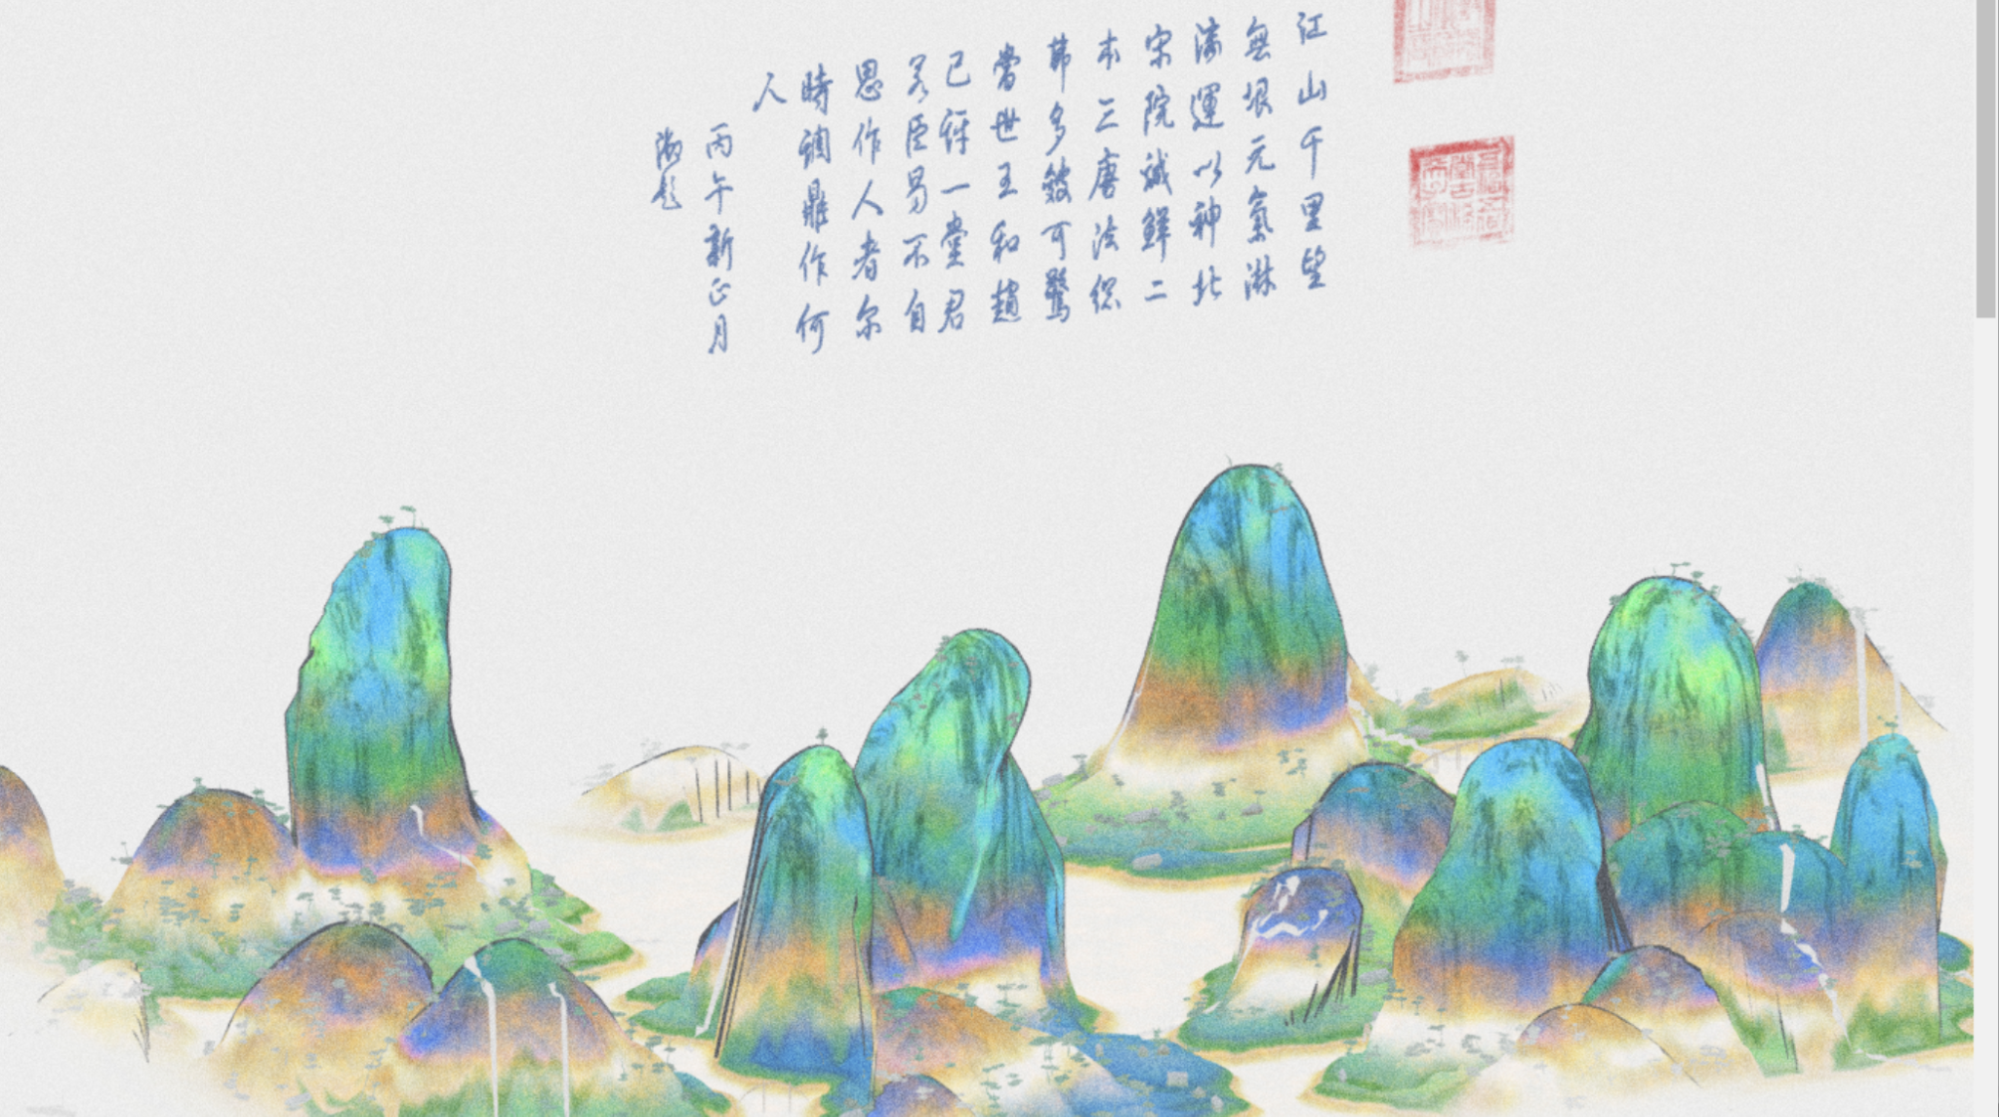 江山千里望
無垠元氣淋
漓運以神北
宋院誠鮮二
本三唐法總
弗多皴可驚
當世王和趙
已訝一堂君
若臣曷不自
思作人者尔
時調鼎作何
人
丙午新正月
御題